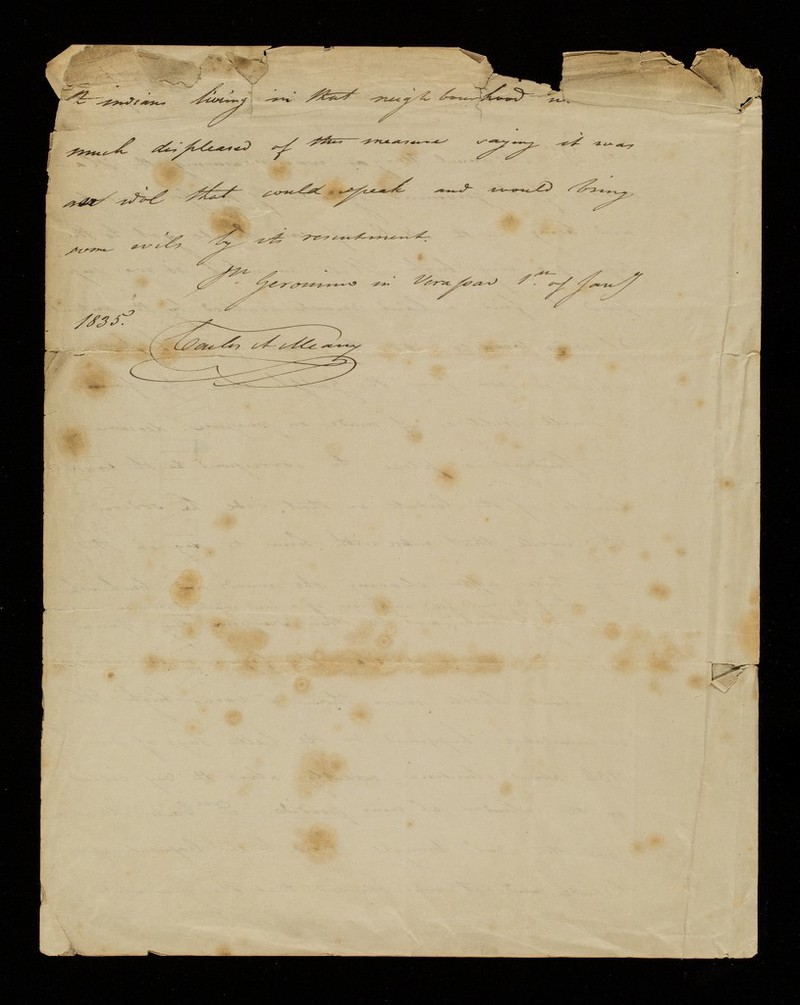 the indians living in that neighbourhood
much displeased of this measure saying it was
an idol that could speak and would bring
some evils by its resentment.
Sn. Geronimo in Verapaz 1st of Jany
1835.
Carlos A Meany